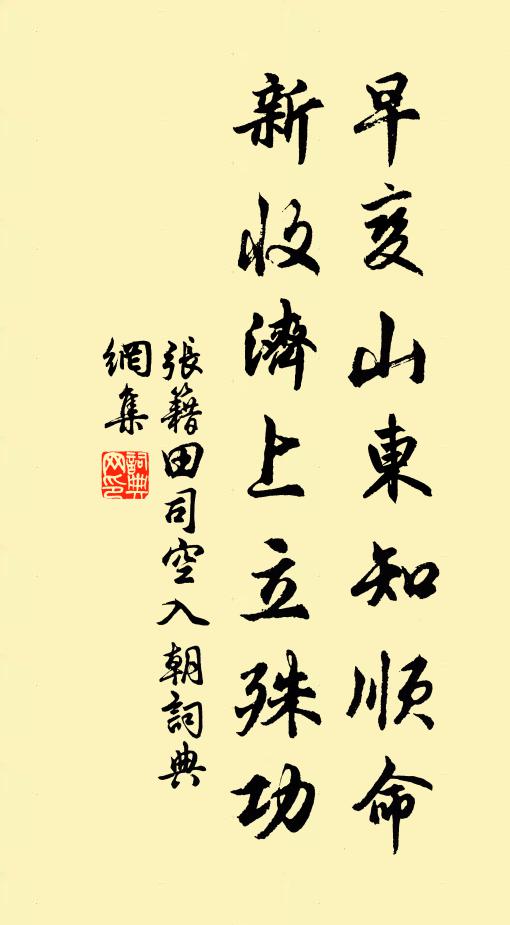 早变山東知順命
新收濟上立殊功
張籍田司空入朝詞典
網集
詞典網印